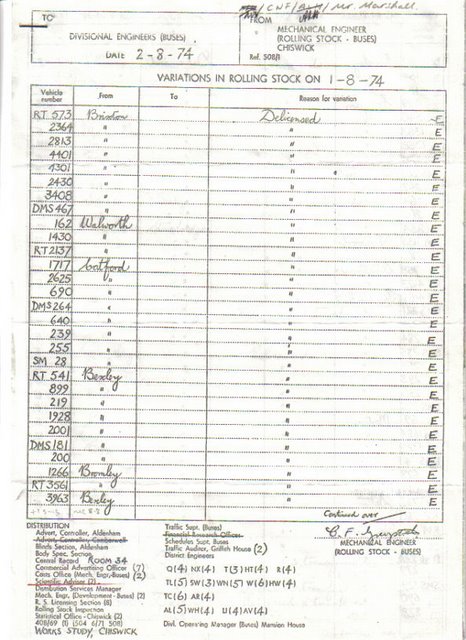 TO
DIVISIONAL ENGINEERS (BUSES)
DATE 2-8-74
/CNF/ / Mr. Marshall.
FROM
MECHANICAL ENGINEER
(ROLLING STOCK - BUSES)
CHISWICK
Ref. 508/1
VARIATIONS IN ROLLING STOCK ON 1-8-74
Vehicle number From To Reason for variation
RT 573 Brixton Delicensed E
2364 " " E
2813 " " E
4401 " " E
4301 " " E
2430 " " E
3408 " " E
DMS 467 " " E
162 Walworth " E
1430 " " E
RT 2137 " " E
1717 Catford " E
2625 " " E
690 " " E
DMS 264 " " E
640 " " E
239 " " E
255 " " E
SM 28 " " E
RT 541 Bexley " E
899 " " E
219 " " E
1928 " " E
2001 " " E
DMS 181 " " E
200 " " E
1266 Bromley " E
RT 3561 " " E
3963 Bexley " E
Continued over
MECHANICAL ENGINEER
(ROLLING STOCK - BUSES)
DISTRIBUTION
Advert. Controller, Aldenham
Advert. Controller, Camberwell
Blinds Section, Aldenham
Body Spec. Section
Central Record ROOM 34
Commercial Advertising Officer (7)
Costs Office (Mech. Engr. Buses) (2)
Scientific Adviser (2)
Distribution Services Manager
Mech. Engr. (Development - Buses) (2)
R. S. Licensing Section (8)
Rolling Stock Inspection
Statistical Office - Chiswick (2)
408/69 (1) (504 6/71 508)
WORKS STUDY, CHISWICK
Traffic Supt. (Buses)
Financial Research Officer
Schedules Supt. Buses
Traffic Auditor, Griffith House (2)
District Engineers
Q(4) NX(4) T(3) HT(4) R(4)
TL(5) SW(3) WN(5) W(6) HW(4)
TC(6) AR(4)
AL(5) WH(4) U(4) AV(4)
Divl. Operating Manager (Buses) Mansion House